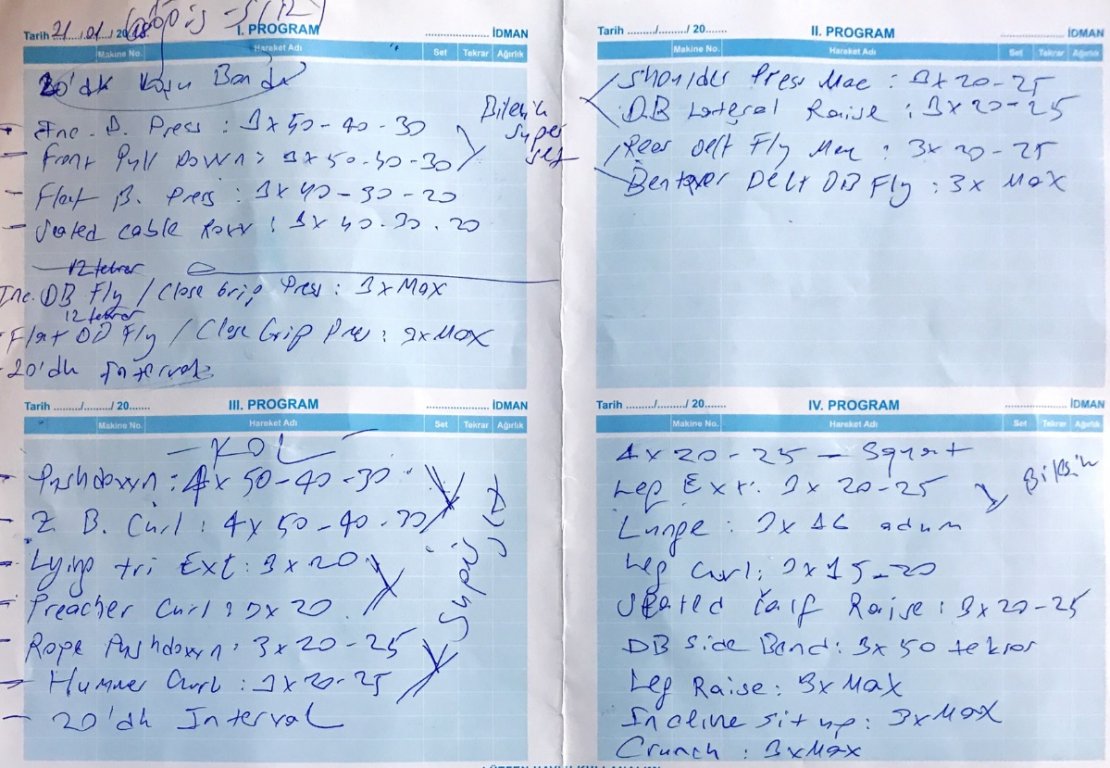 Tarih 21/01/20 I. PROGRAM İDMAN
Makine No. Hareket Adı Set Tekrar Ağırlık
20'dk Koşu Bandı
- Inc. B. Press : 3x50-40-30
- Front Pull Down : 3x50-40-30
Bileşik super set
- Flat B. Press : 3x40-30-20
- Seated cable Row : 3x40-30-20
12 tekrar
Inc. DB Fly / Close Grip Press : 3xMax
12 tekrar
- Flat DB Fly / Close Grip Pres : 3xMax
- 20'dk Interval
Tarih ......../......../ 20....... II. PROGRAM .................... İDMAN
Makine No. Hareket Adı Set Tekrar Ağırlık
Shoulder Press Mac : 3x20-25
DB Lateral Raise : 3x20-25
Rear Delt Fly Mac : 3x20-25
Bentover Delt DB Fly : 3x Max
Tarih ......../......../ 20....... III. PROGRAM .................... İDMAN
Makine No. Hareket Adı Set Tekrar Ağırlık
- KOL -
- Pushdown : 4x50-40-30
- Z B. Curl : 4x50-40-30
- Lying tri Ext : 3x20
- Preacher Curl : 3x20
Rope Pushdown : 3x20-25
- Hummer Curl : 3x20-25
- 20'dk Interval
Tarih ......../......../ 20....... IV. PROGRAM .................... İDMAN
Makine No. Hareket Adı Set Tekrar Ağırlık
4x20-25 - Squat
Leg Ext. 3x20-25
Lunge : 3x16 adım
Leg Curl : 3x15-20
Seated Calf Raise : 3x20-25
DB Side Bend : 3x50 tekrar
Leg Raise : 3xMax
Incline sit up : 3xMax
Crunch : 3xMax